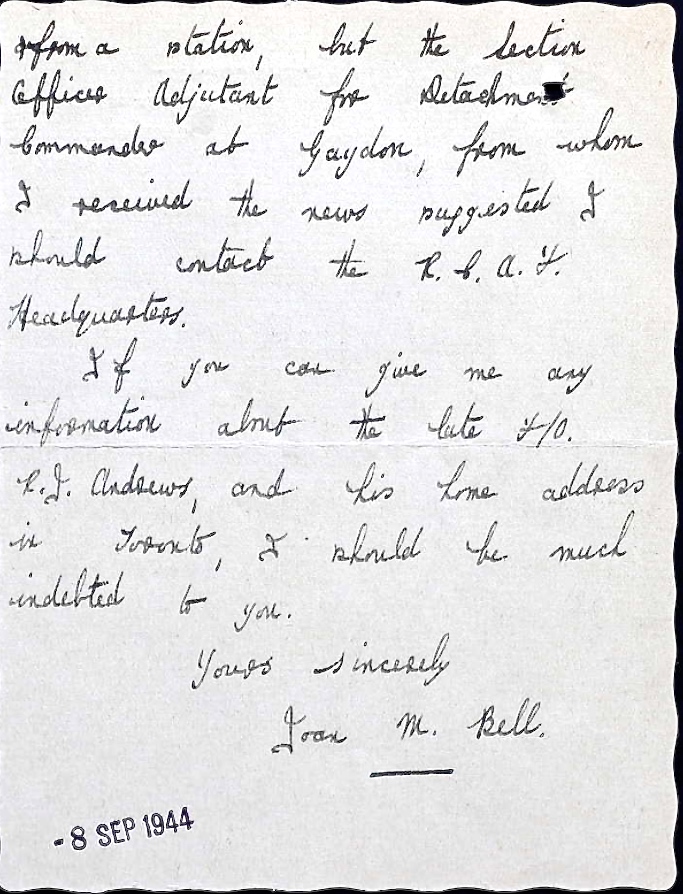 from a station, but the Section
Officer Adjutant for Detachment
Commander at Gaydon, from whom
I received the news suggested I
should contact the R. C. A. F.
Headquarters.
If you can give me any
information about the late F/O.
R.J. Andrews, and his home address
in Toronto, I should be much
indebted to you.
Yours sincerely
Joan M. Bell.
- 8 SEP 1944